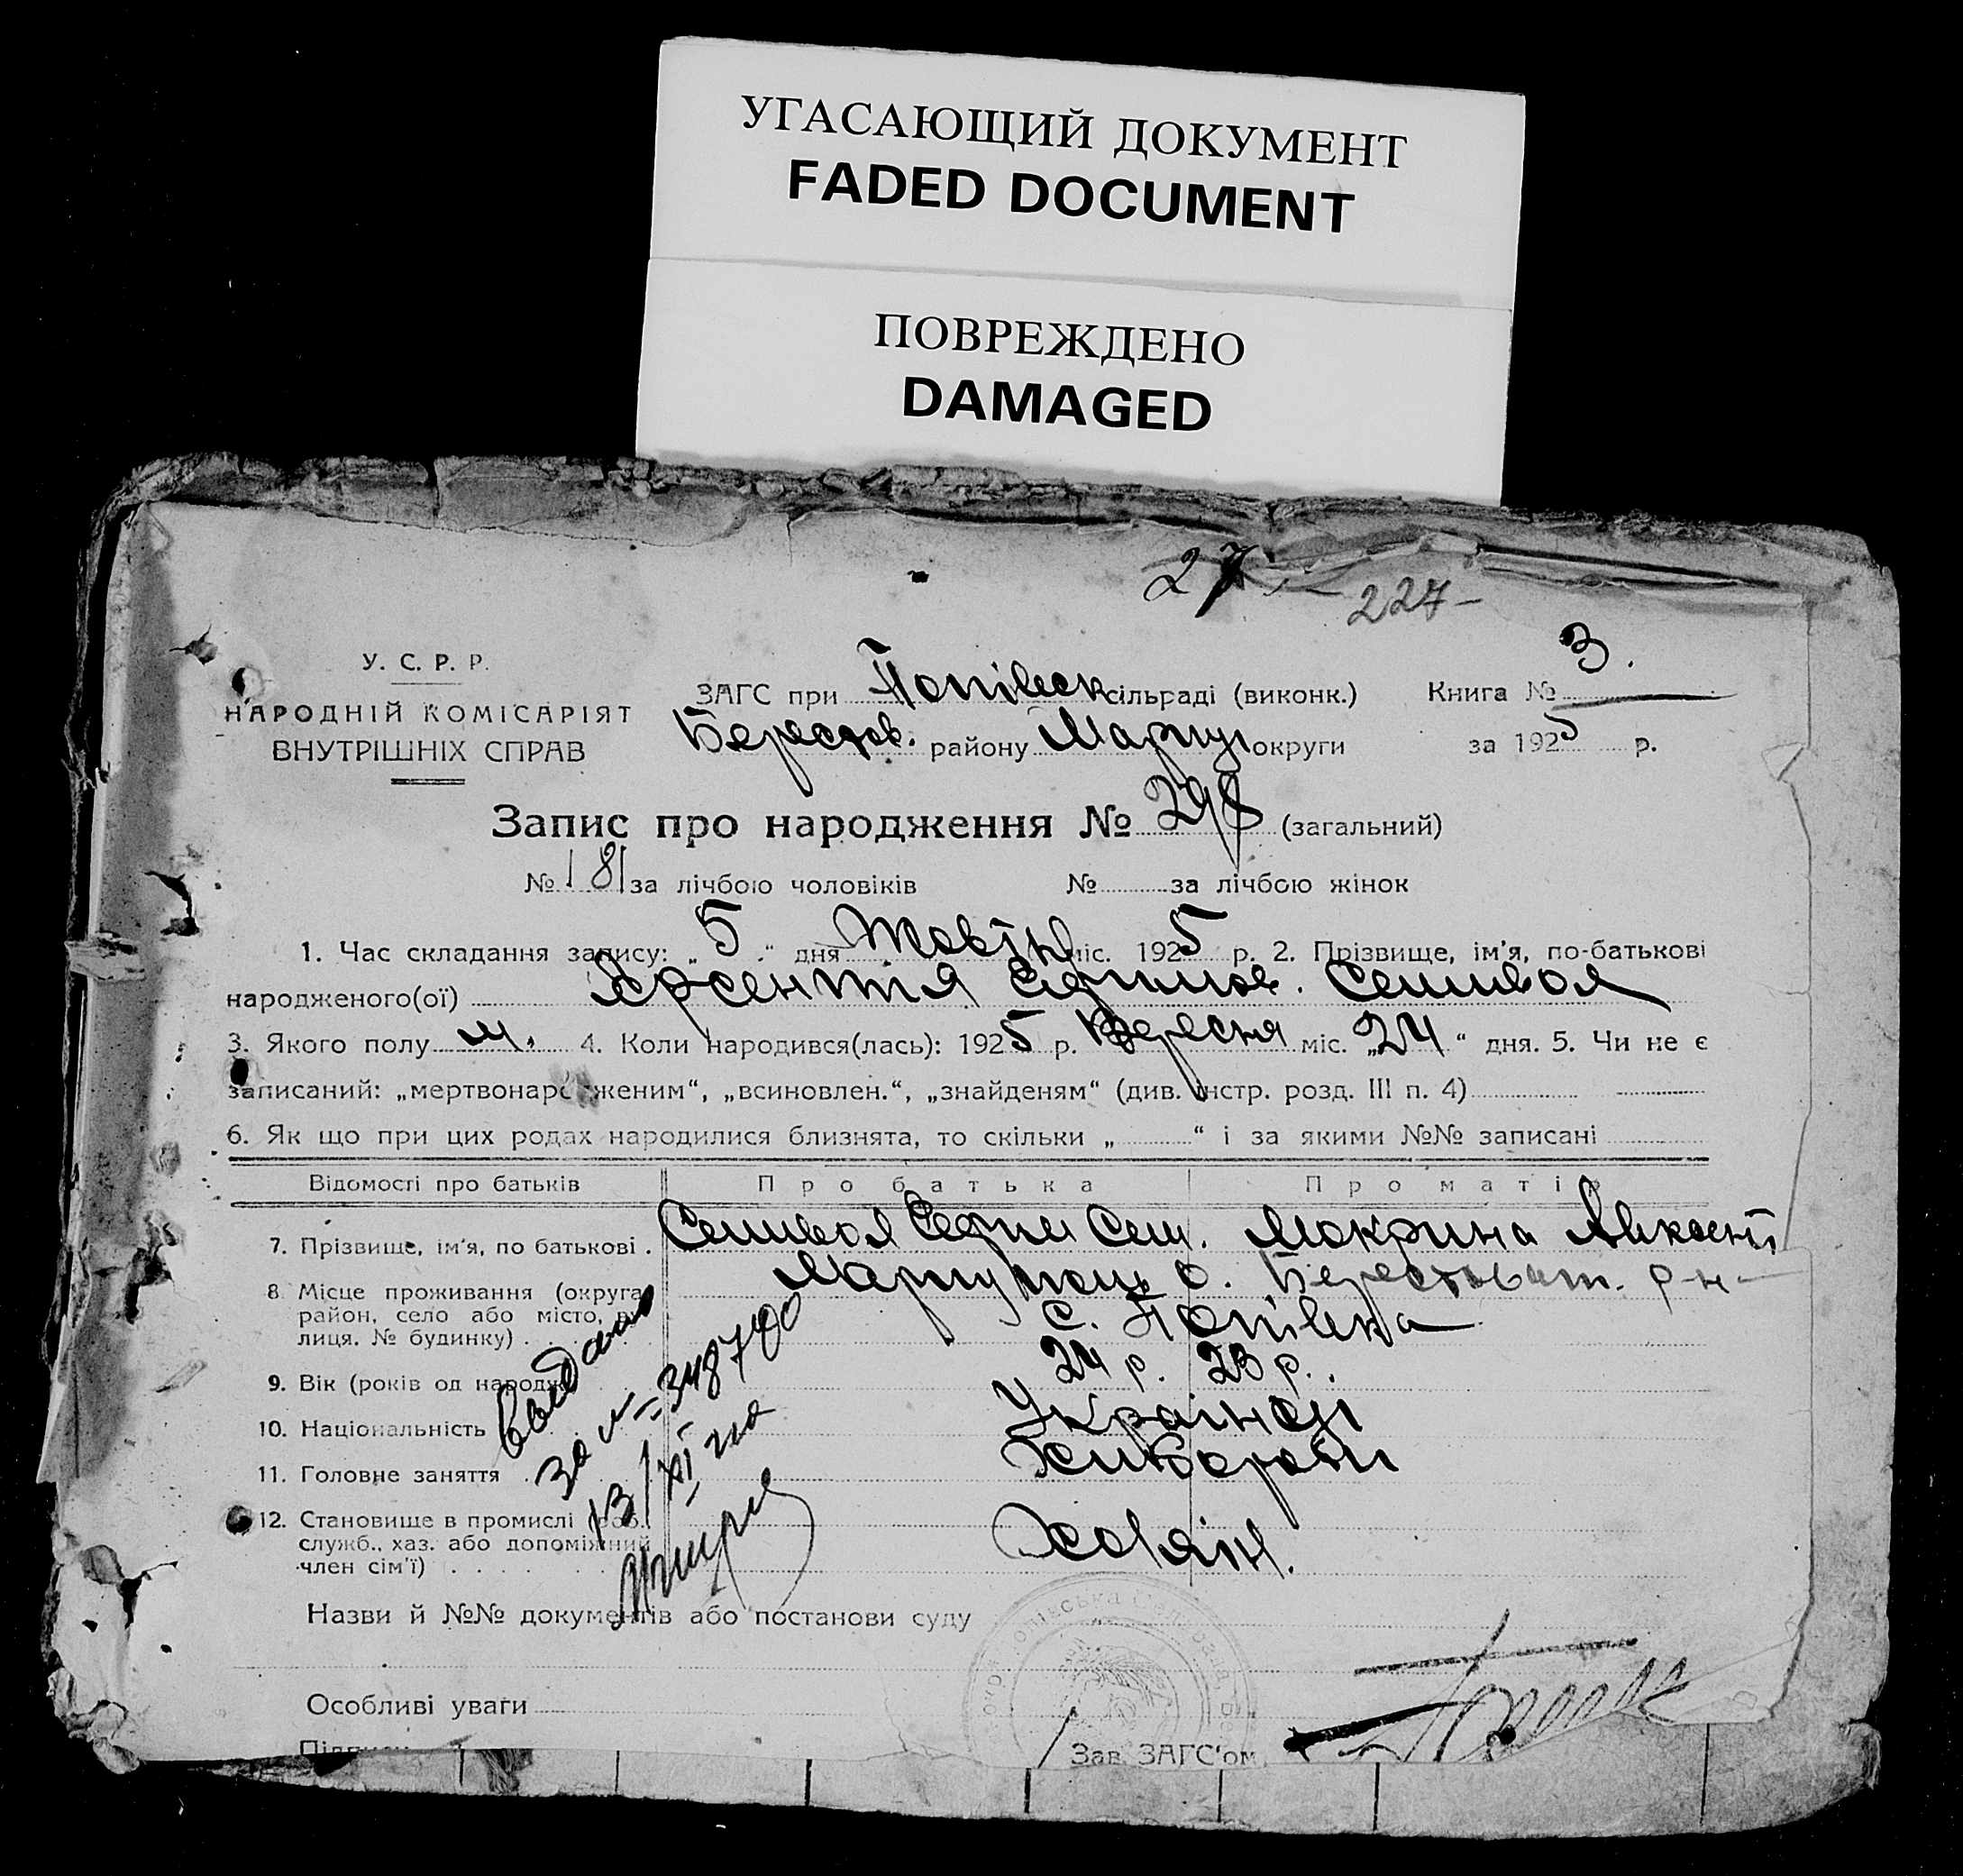 УГАСАЮЩИЙ ДОКУМЕНТ
FADED DOCUMENT
ПОВРЕЖДЕНО
DAMAGED
27
227-
У. С. Р. Р.
НАРОДНІЙ КОМІСАРІЯТ
ВНУТРІШНІХ СПРАВ
ЗАГС при Попівськ сільраді (виконк.) Книга № 3.
Берестов. району Маріуп округи за 1925 р.
Запис про народження № 298 (загальний)
№ 181 за лічбою чоловіків № за лічбою жінок
1. Час складання запису: „5“ дня Жовтн міс. 1925 р. 2. Прізвище, ім'я, по-батькові
народженого(ої) Арсентія Єфимов. Селивол
3. Якого полу м. 4. Коли народився(лась): 1925 р. Вересня міс. „24“ дня. 5. Чи не є
записаний: „мертвонародженим“, „всиновлен.“, „знайденям“ (див. інстр. розд. III п. 4)
6. Як що при цих родах народилися близнята, то скільки „ “ і за якими №№ записані
Відомості про батьків Про батька Про матір
7. Прізвище, ім'я, по батькові. Селивол Сем. Мокрина
8. Місце проживання (округа, район, село або місто, вулиця. № будинку) Маріупол о. Берестоват. р-н
с. Попівка
9. Вік (років од народж. 24 р. 23 р.
10. Національність Українці
11. Головне заняття Хлібороби
12. Становище в промислі (роб., служб., хаз. або допоміжний член сім'ї)
Видано
за № 348700
13/XI
Назви й №№ документів або постанови суду
Особливі уваги
Зав. ЗАГС'ом